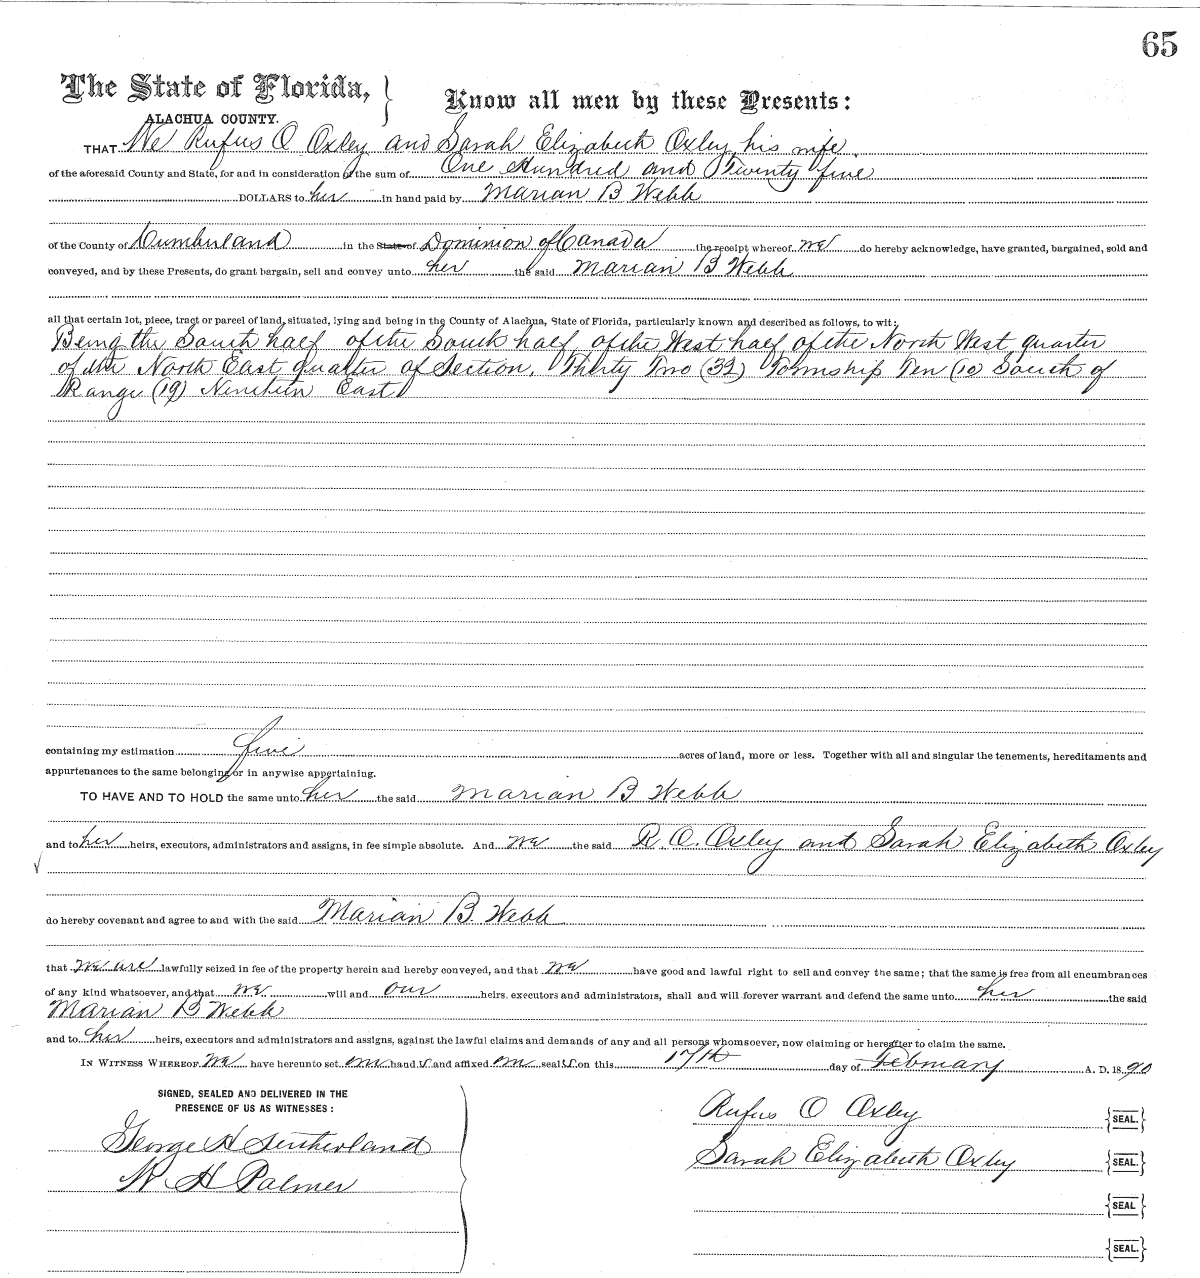 65
The State of Florida,
ALACHUA COUNTY.
Know all men by these Presents:
THAT We Rufus O Oxley and Sarah Elizabeth Oxley his wife
of the aforesaid County and State, for and in consideration of the sum of One Hundred and Twenty five
DOLLARS to her in hand paid by Marian B Webb
of the County of Cumberland in the State of Dominion of Canada the receipt whereof we do hereby acknowledge, have granted, bargained, sold and
conveyed, and by these Presents, do grant bargain, sell and convey unto her the said Marian B Webb
all that certain lot, piece, tract or parcel of land, situated, lying and being in the County of Alachua, State of Florida, particularly known and described as follows, to wit:
Being the South half of the South half of the West half of the North West quarter
of the North East quarter of Section, Thirty Two (32) Township Ten (10 South of
Range (19) Nineteen East
containing my estimation five acres of land, more or less. Together with all and singular the tenements, hereditaments and
appurtenances to the same belonging or in anywise appertaining.
TO HAVE AND TO HOLD the same unto her the said Marian B Webb
and to her heirs, executors, administrators and assigns, in fee simple absolute. And we the said R. O. Oxley and Sarah Elizabeth Oxley
do hereby covenant and agree to and with the said Marian B Webb
that we are lawfully seized in fee of the property herein and hereby conveyed, and that we have good and lawful right to sell and convey the same; that the same is free from all encumbrances
of any kind whatsoever, and that we will and our heirs. executors and administrators, shall and will forever warrant and defend the same unto her the said
Marian B Webb
and to her heirs, executors and administrators and assigns, against the lawful claims and demands of any and all persons whomsoever, now claiming or hereafter to claim the same.
IN WITNESS WHEREOF, We have hereunto set our hand s and affixed our seal s on this 17th day of February A. D. 18 90
SIGNED, SEALED AND DELIVERED IN THE
PRESENCE OF US AS WITNESSES:
George H Sutherland
W H Palmer
Rufus O Oxley {SEAL.}
Sarah Elizabeth Oxley {SEAL.}
{SEAL}
{SEAL.}